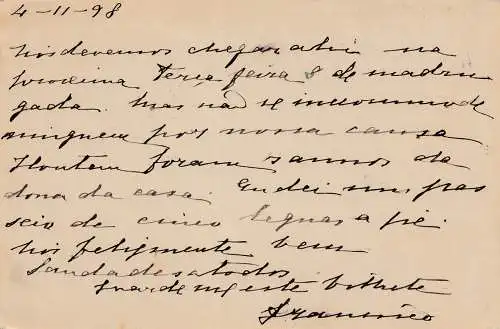 4-11-98
Nós devemos chegar ahi na
proxima terça feira 8 de madru
gada. Mas não se incommode
ninguem por nossa causa
Hontem foram annos da
dona da casa. Eu dei um pas
seio de cinco leguas a pé.
Nós felizmente bem
Saudades a todos
Guarde me este bilhete
Francisco